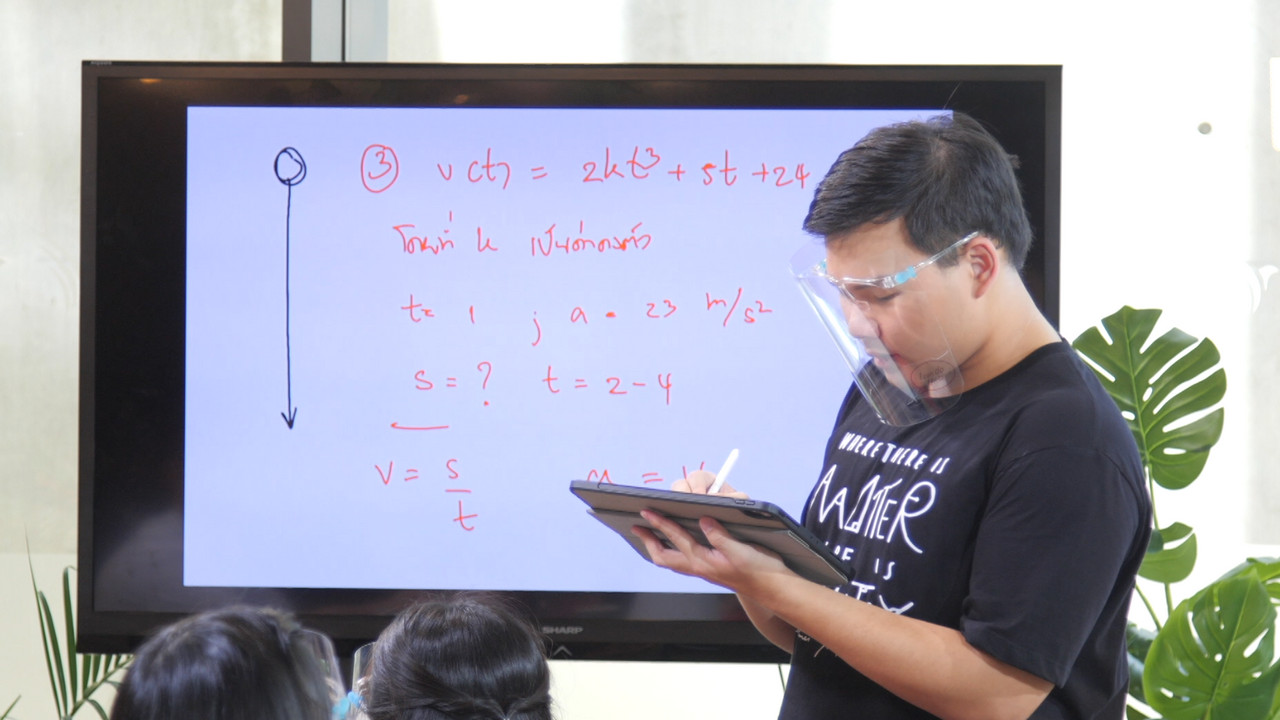 ③ v(t) = 2kt³ + 5t + 24
โดยที่ k เป็นค่าคงตัว
t = 1 ; a = 23 m/s²
s = ? t = 2 - 4
v = s/t a = v
SHARP
WHERE THERE IS
MATTER
IS